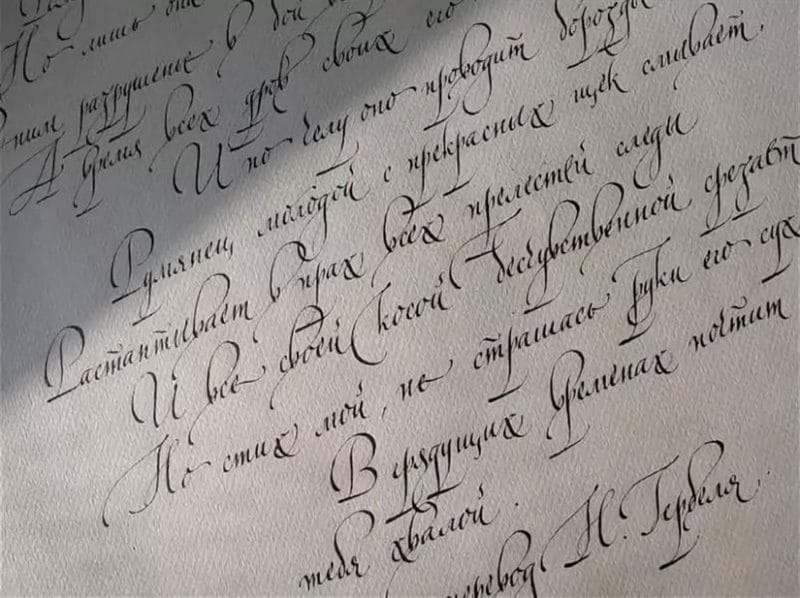 Но лишь
ним разрушенье в бой
А время всех дров своих его
И по челу оно проводит борозды
Румянец молодой с прекрасных щек сливает.
Растаптывает в прах всех прелестей следы
И все своей косой бесчувственной срезает
Но стих мой, не страшась руки его сух
В грядущих временах почтит
тебя хвалой.
перевод Н. Гербеля.